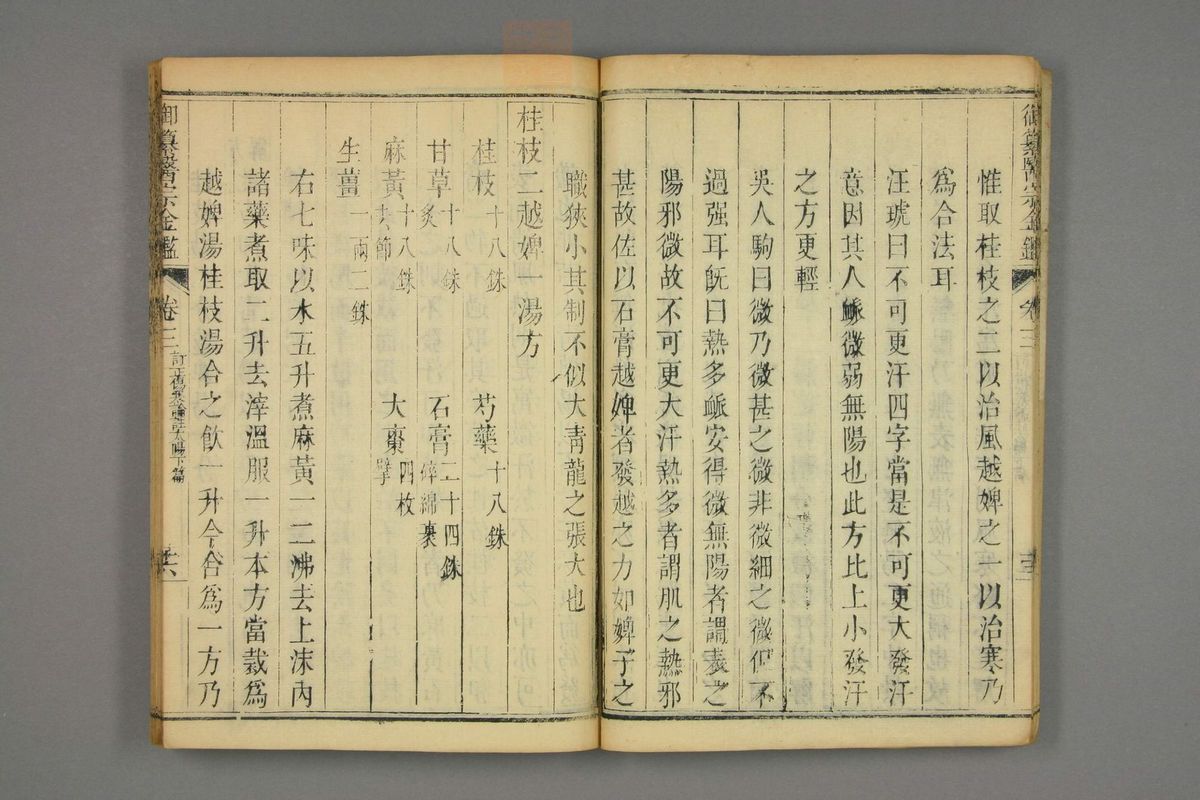 惟取桂枝之二以治風越婢之一以治寒乃
為合法耳
汪琥曰不可更汗四字當是不可更大發汗
意因其人脈微弱無陽也此方比上小發汗
之方更輕
吳人駒曰微乃微甚之微非微細之微但不
過强耳既曰熱多脈安得微無陽者謂表之
陽邪微故不可更大汗熱多者謂肌之熱邪
甚故佐以石膏越婢者發越之力如婢子之
職狹小其制不似大青龍之張大也
桂枝二越婢一湯方
桂枝十八銖 芍藥十八銖
甘草十八銖炙 石膏二十四銖碎綿裹
麻黃十八銖去節 大棗四枚擘
生薑一兩二銖
右七味以水五升煮麻黃一二沸去上沫內
諸藥煮取二升去滓溫服一升本方當裁為
越婢湯桂枝湯合之飲一升今合為一方乃
御纂醫宗金鑑 卷三 訂正傷寒論註太陽下篇
御纂醫宗金鑑 卷三